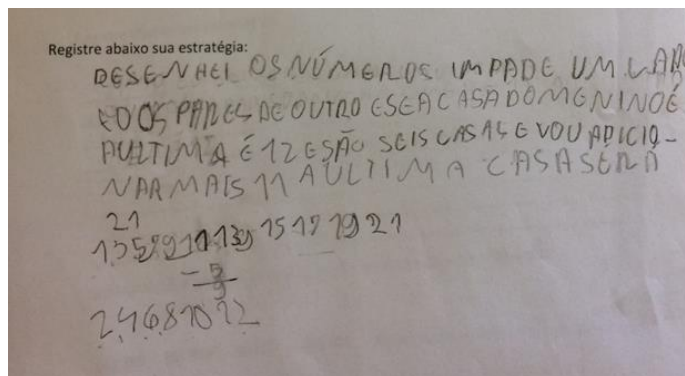 Registre abaixo sua estratégia:
DESENHEI OS NÚMEROS IMPADE UM LAD
EO OS PARES DE OUTRO E SEA CASA DO MENINO É
AULTIMA É 12 E SÃO SEIS CASAS E VOU ADICIO-
NAR MAIS 11 A ULTIMA CASA SERA
21
15 17 19 21
- 5
9
2 4 6 8 10 12